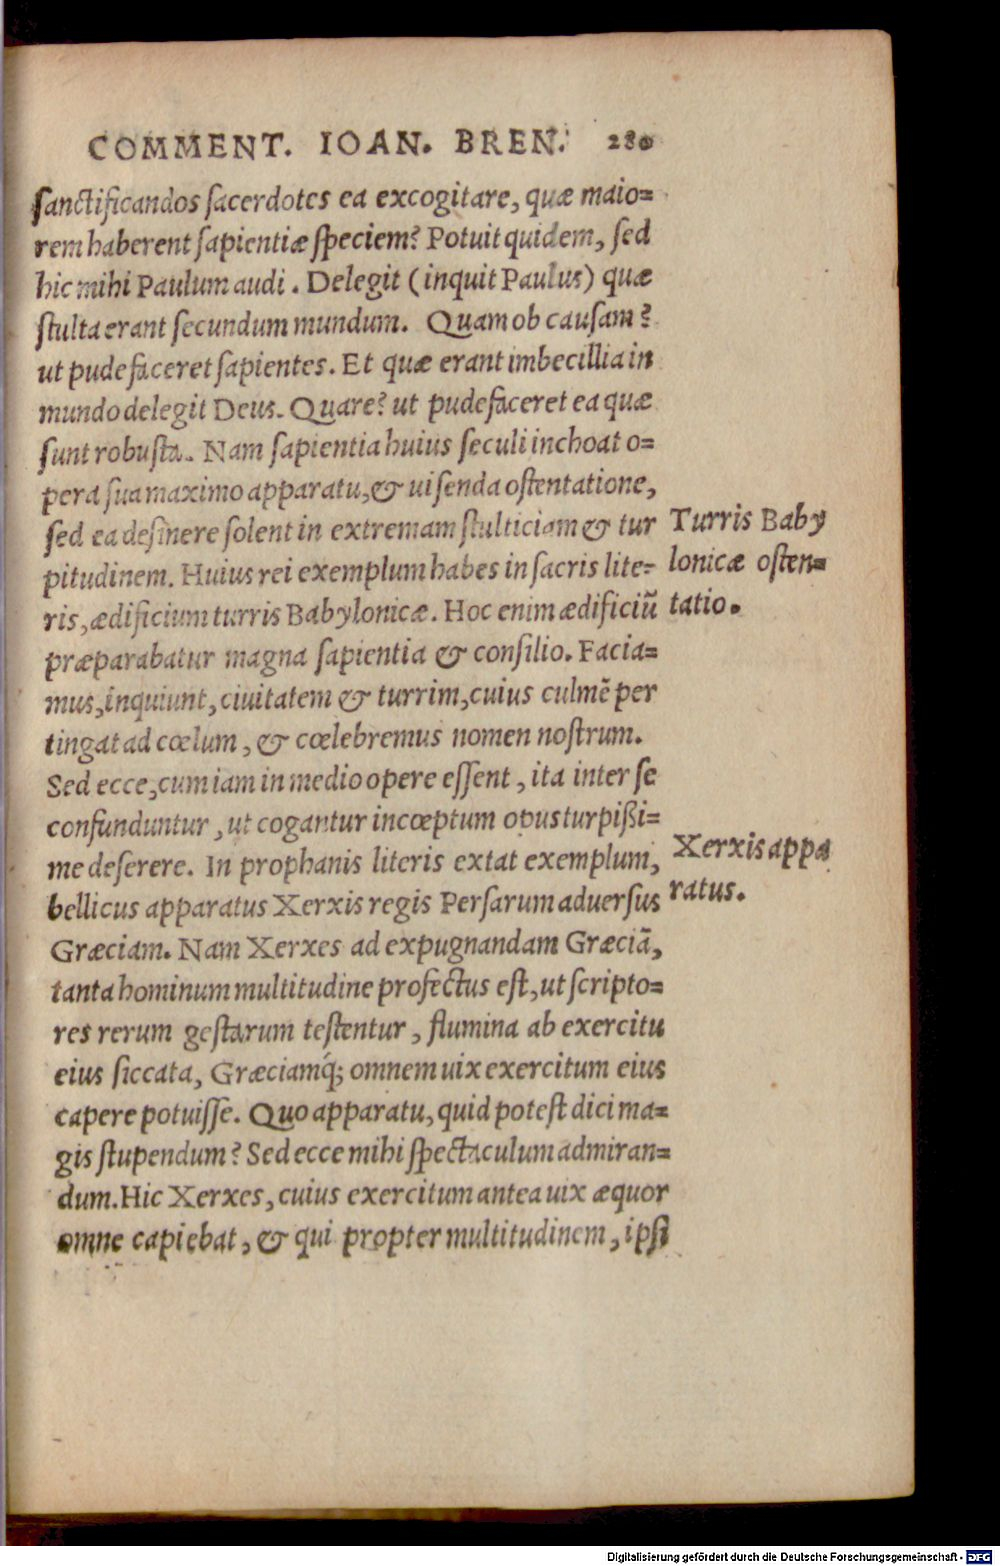 COMMENT. IOAN. BREN. 280
sanctificandos sacerdotes ea excogitare, quæ maio=
rem haberent sapientiæ speciem? Potuit quidem, sed
hic mihi Paulum audi. Delegit (inquit Paulus) quæ
stulta erant secundum mundum. Quam ob causam?
ut pudefaceret sapientes. Et quæ erant imbecillia in
mundo delegit Deus. Quare? ut pudefaceret ea quæ
sunt robusta. Nam sapientia huius seculi inchoat o=
pera sua maximo apparatu, & uisenda ostentatione,
sed ea desinere solent in extremam stulticiam & tur
pitudinem. Huius rei exemplum habes in sacris lite=
ris, ædificium turris Babylonicæ. Hoc enim ædificiũ
præparabatur magna sapientia & consilio. Facia=
mus, inquiunt, ciuitatem & turrim, cuius culmẽ per
tingat ad cœlum, & cœlebremus nomen nostrum.
Sed ecce, cum iam in medio opere essent, ita inter se
confunduntur, ut cogantur incœptum opus turpißi=
me deserere. In prophanis literis extat exemplum,
bellicus apparatus Xerxis regis Persarum aduersus
Græciam. Nam Xerxes ad expugnandam Græciã,
tanta hominum multitudine profectus est, ut scripto=
res rerum gestarum testentur, flumina ab exercitu
eius siccata, Græciamq́; omnem uix exercitum eius
capere potuisse. Quo apparatu, quid potest dici ma=
gis stupendum? Sed ecce mihi spectaculum admiran=
dum. Hic Xerxes, cuius exercitum antea uix æquor
omne capiebat, & qui propter multitudinem, ipsi
Turris Baby
lonicæ osten=
tatio.
Xerxis appa
ratus.
Digitalisierung gefördert durch die Deutsche Forschungsgemeinschaft - DFG